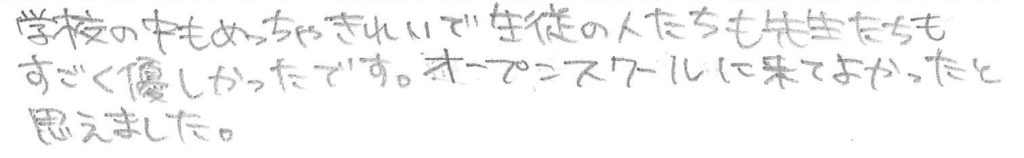 学校の中もめっちゃきれいで生徒の人たちも先生たちも
すごく優しかったです。オープンスクールに来てよかったと
思えました。